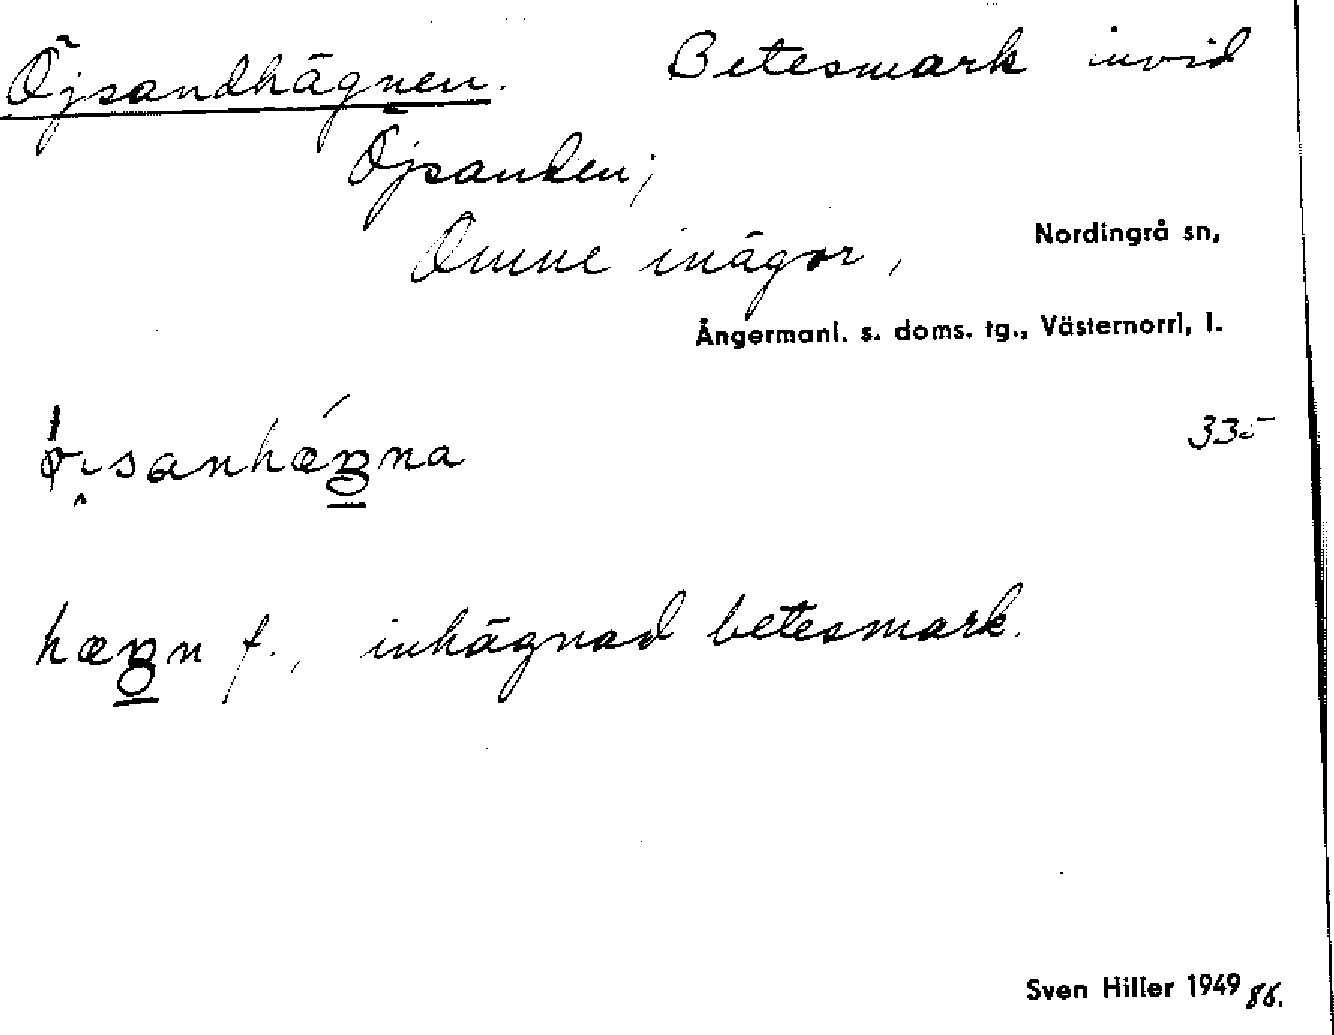 Öjsandhägnen. Betesmark invid
Öjsanden;
Omne inägor,
Nordingrå sn,
Ångermanl. s. doms. tg., Västernorrl, l.
335
hægn f., inhägnad betesmark.
Sven Hiller 1949 86.